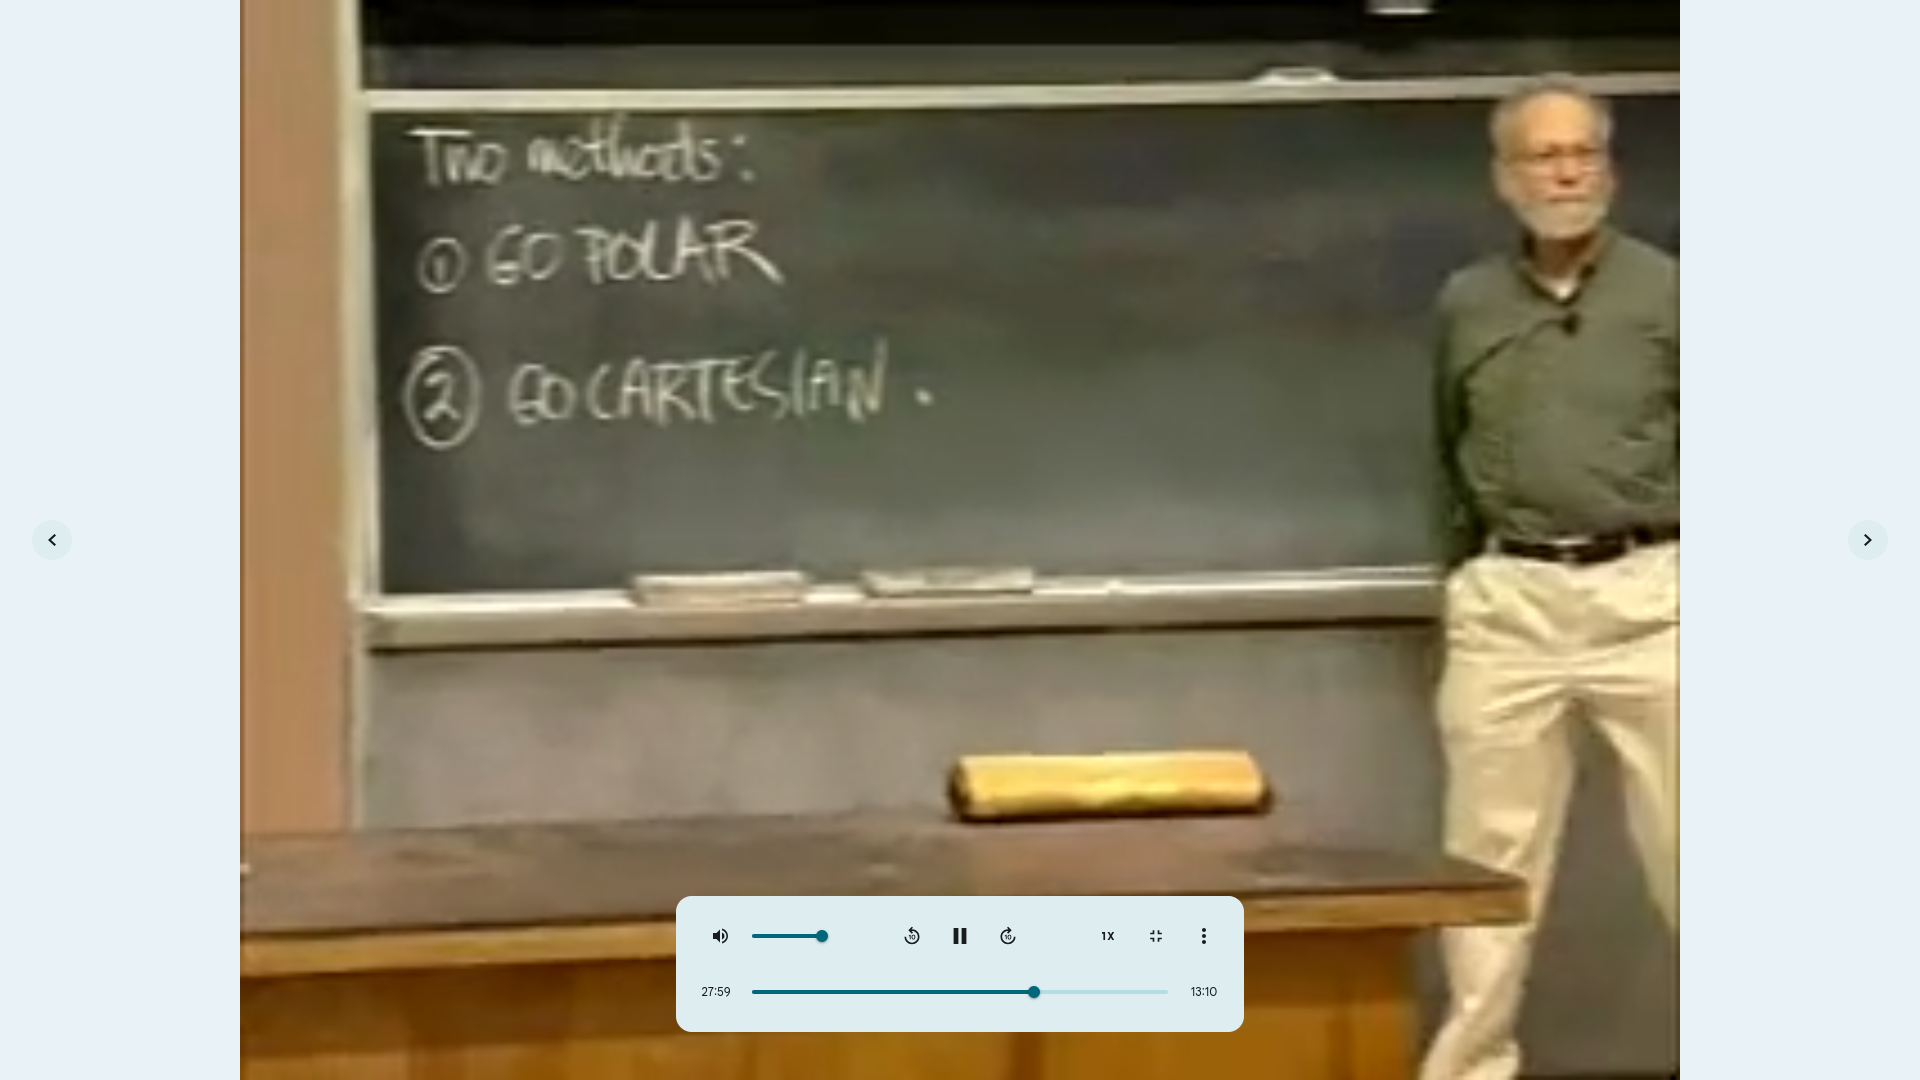 Two methods:
① GO POLAR
② GO CARTESIAN.
10
10
1X
27:59
13:10